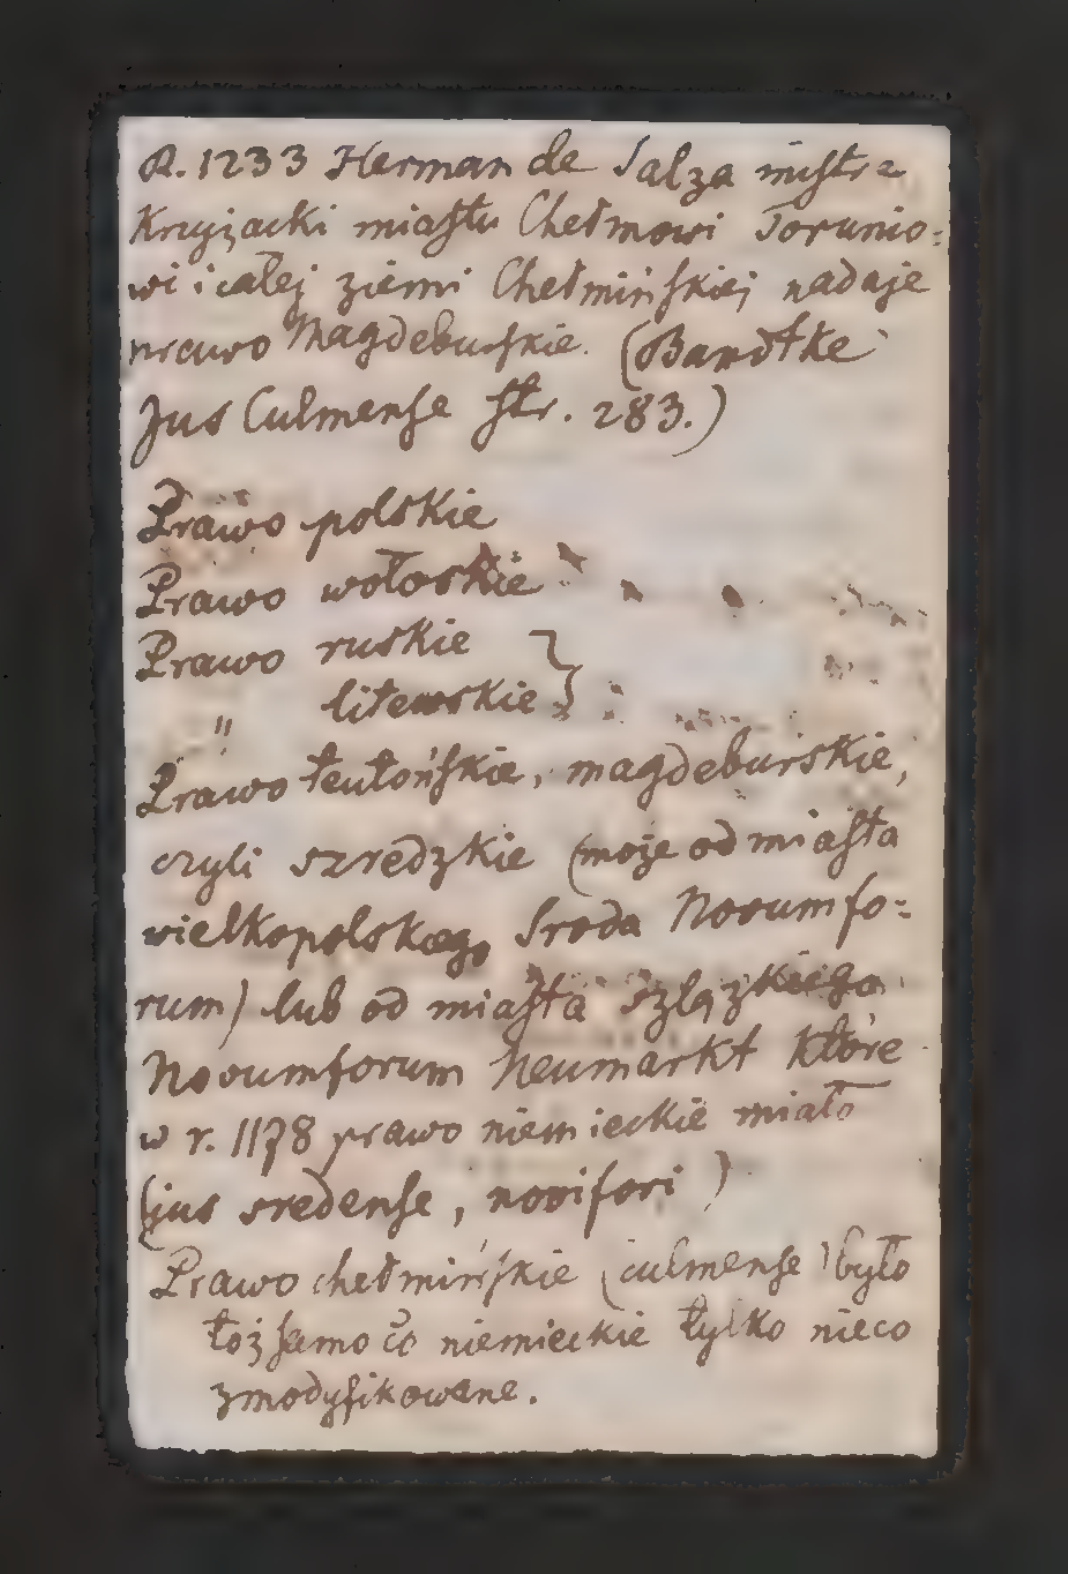 R. 1233 Herman de Salza mistrz
Krzyżacki miastu Chełmowi Torunio=
wi i całej ziemi Chełmińskiej nadaje
prawo Magdeburskie. (Bandtke
Jus Culmense str. 283.)
Prawo polskie
Prawo wołoskie
Prawo ruskie }
" litewskie }
Prawo teutońskie, magdeburskie,
czyli szredzkie (może od miasta
wielkopolskiego Sroda Novumfo=
rum) lub od miasta Szlązkiego
Novumforum Neumarkt które
w r. 1178 prawo niemieckie miało
(jus sredense, novifori)
Prawo chełmińskie (culmense) było
toż samo co niemieckie tylko nieco
zmodyfikowane.